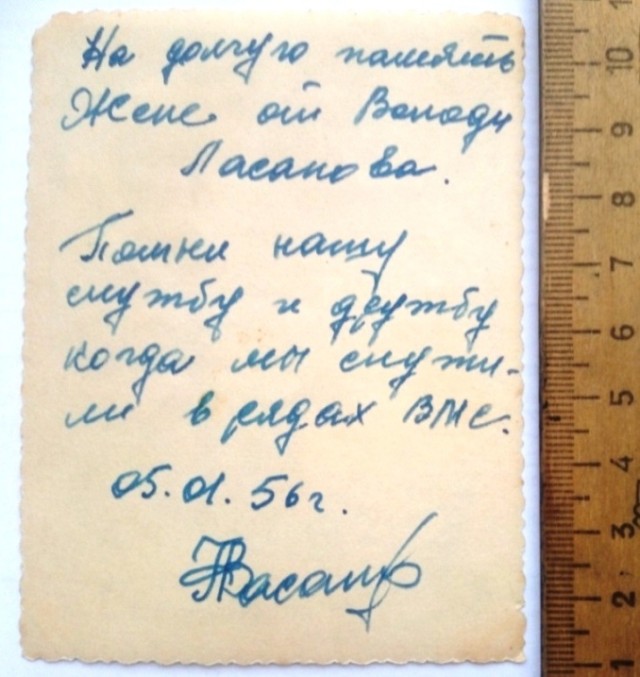 На долгую память
Жене от Володи
Ласанова.
Помни нашу
службу и дружбу
когда мы служи-
ли в рядах ВМС.
05.01.56г.
10
9
8
7
6
5
4
3
2
1